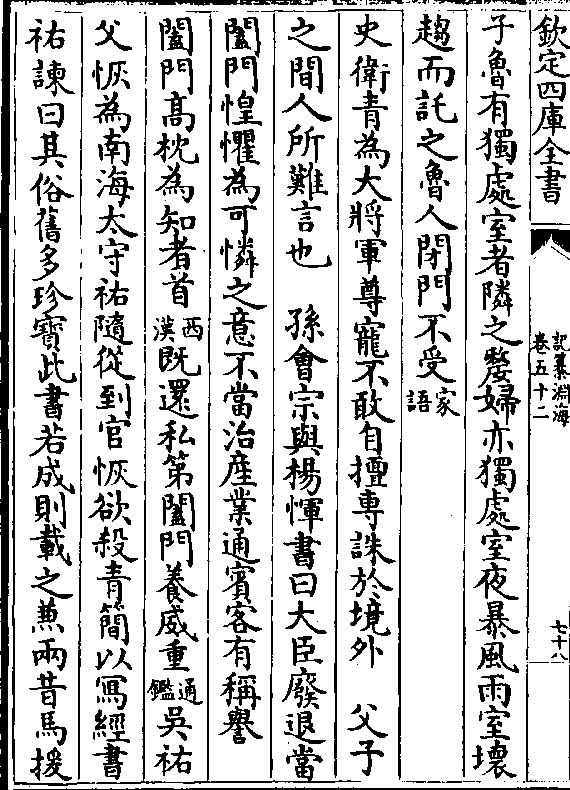 欽定四庫全書
記纂淵海
卷五十二
七十八
子魯有獨處室者隣之嫠婦亦獨處室夜暴風雨室壞
趨而託之魯人閉門不受家語
史衛青為大將軍尊寵不敢自擅專誅於境外　父子
之間人所難言也　孫會宗與楊惲書曰大臣廢退當
闔門惶懼為可憐之意不當治産業通賓客有稱譽
闔門髙枕為知者首西漢既還私第闔門養威重通鑑吳祐
父恢為南海太守祐隨從到官恢欲殺青簡以寫經書
祐諫曰其俗舊多珍寶此書若成則載之兼兩昔馬援